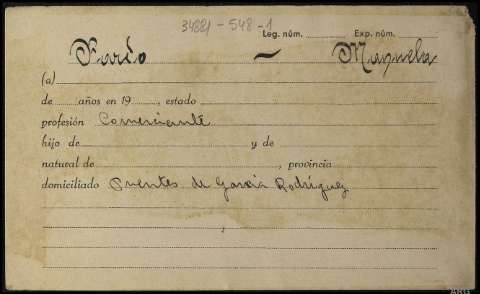 34881-548-1
Leg. núm. Exp. núm.
Pardo — Manuela
(a)
de años en 19 , estado
profesión Comerciante
hijo de y de
natural de , provincia
domiciliado Puentes de García Rodríguez